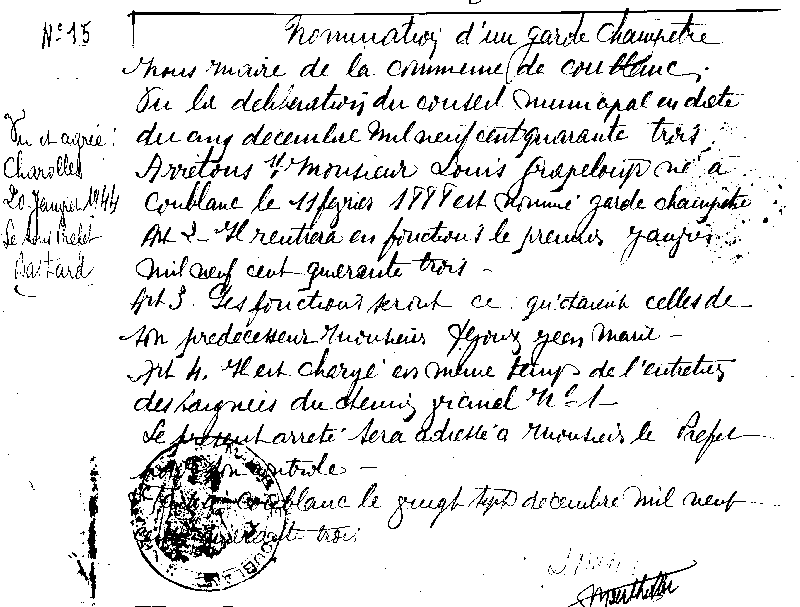 N° 15
Nomination d'un garde champetre
Nous maire de la commune de coublanc,
Vu la deliberation du conseil municipal en date
du cinq decembre mil neuf cent quarante trois
Arrêtons Monsieur Louis Grapeloup né à
coublanc le 11 fevrier 1888 est nommé garde champetre
Art 2 - Il rentrera en fonctions le premier janvier
mil neuf cent quarante trois -
Art 3. Ses fonctions seront ce qu'etaient celles de
son predecesseur Monsieur jean marie -
Art 4. Il est chargé en même temps de l'entretien
des saignées du chemin N° 1 -
Le present arreté sera adressé à Monsieur le Prefet
son controle -
coublanc le vingt sept decembre mil neuf
cent quarante trois
Vu et agréé :
Charolles
20 Janvier 1944
Le Sous Prefet
Bastard
COUBLANC